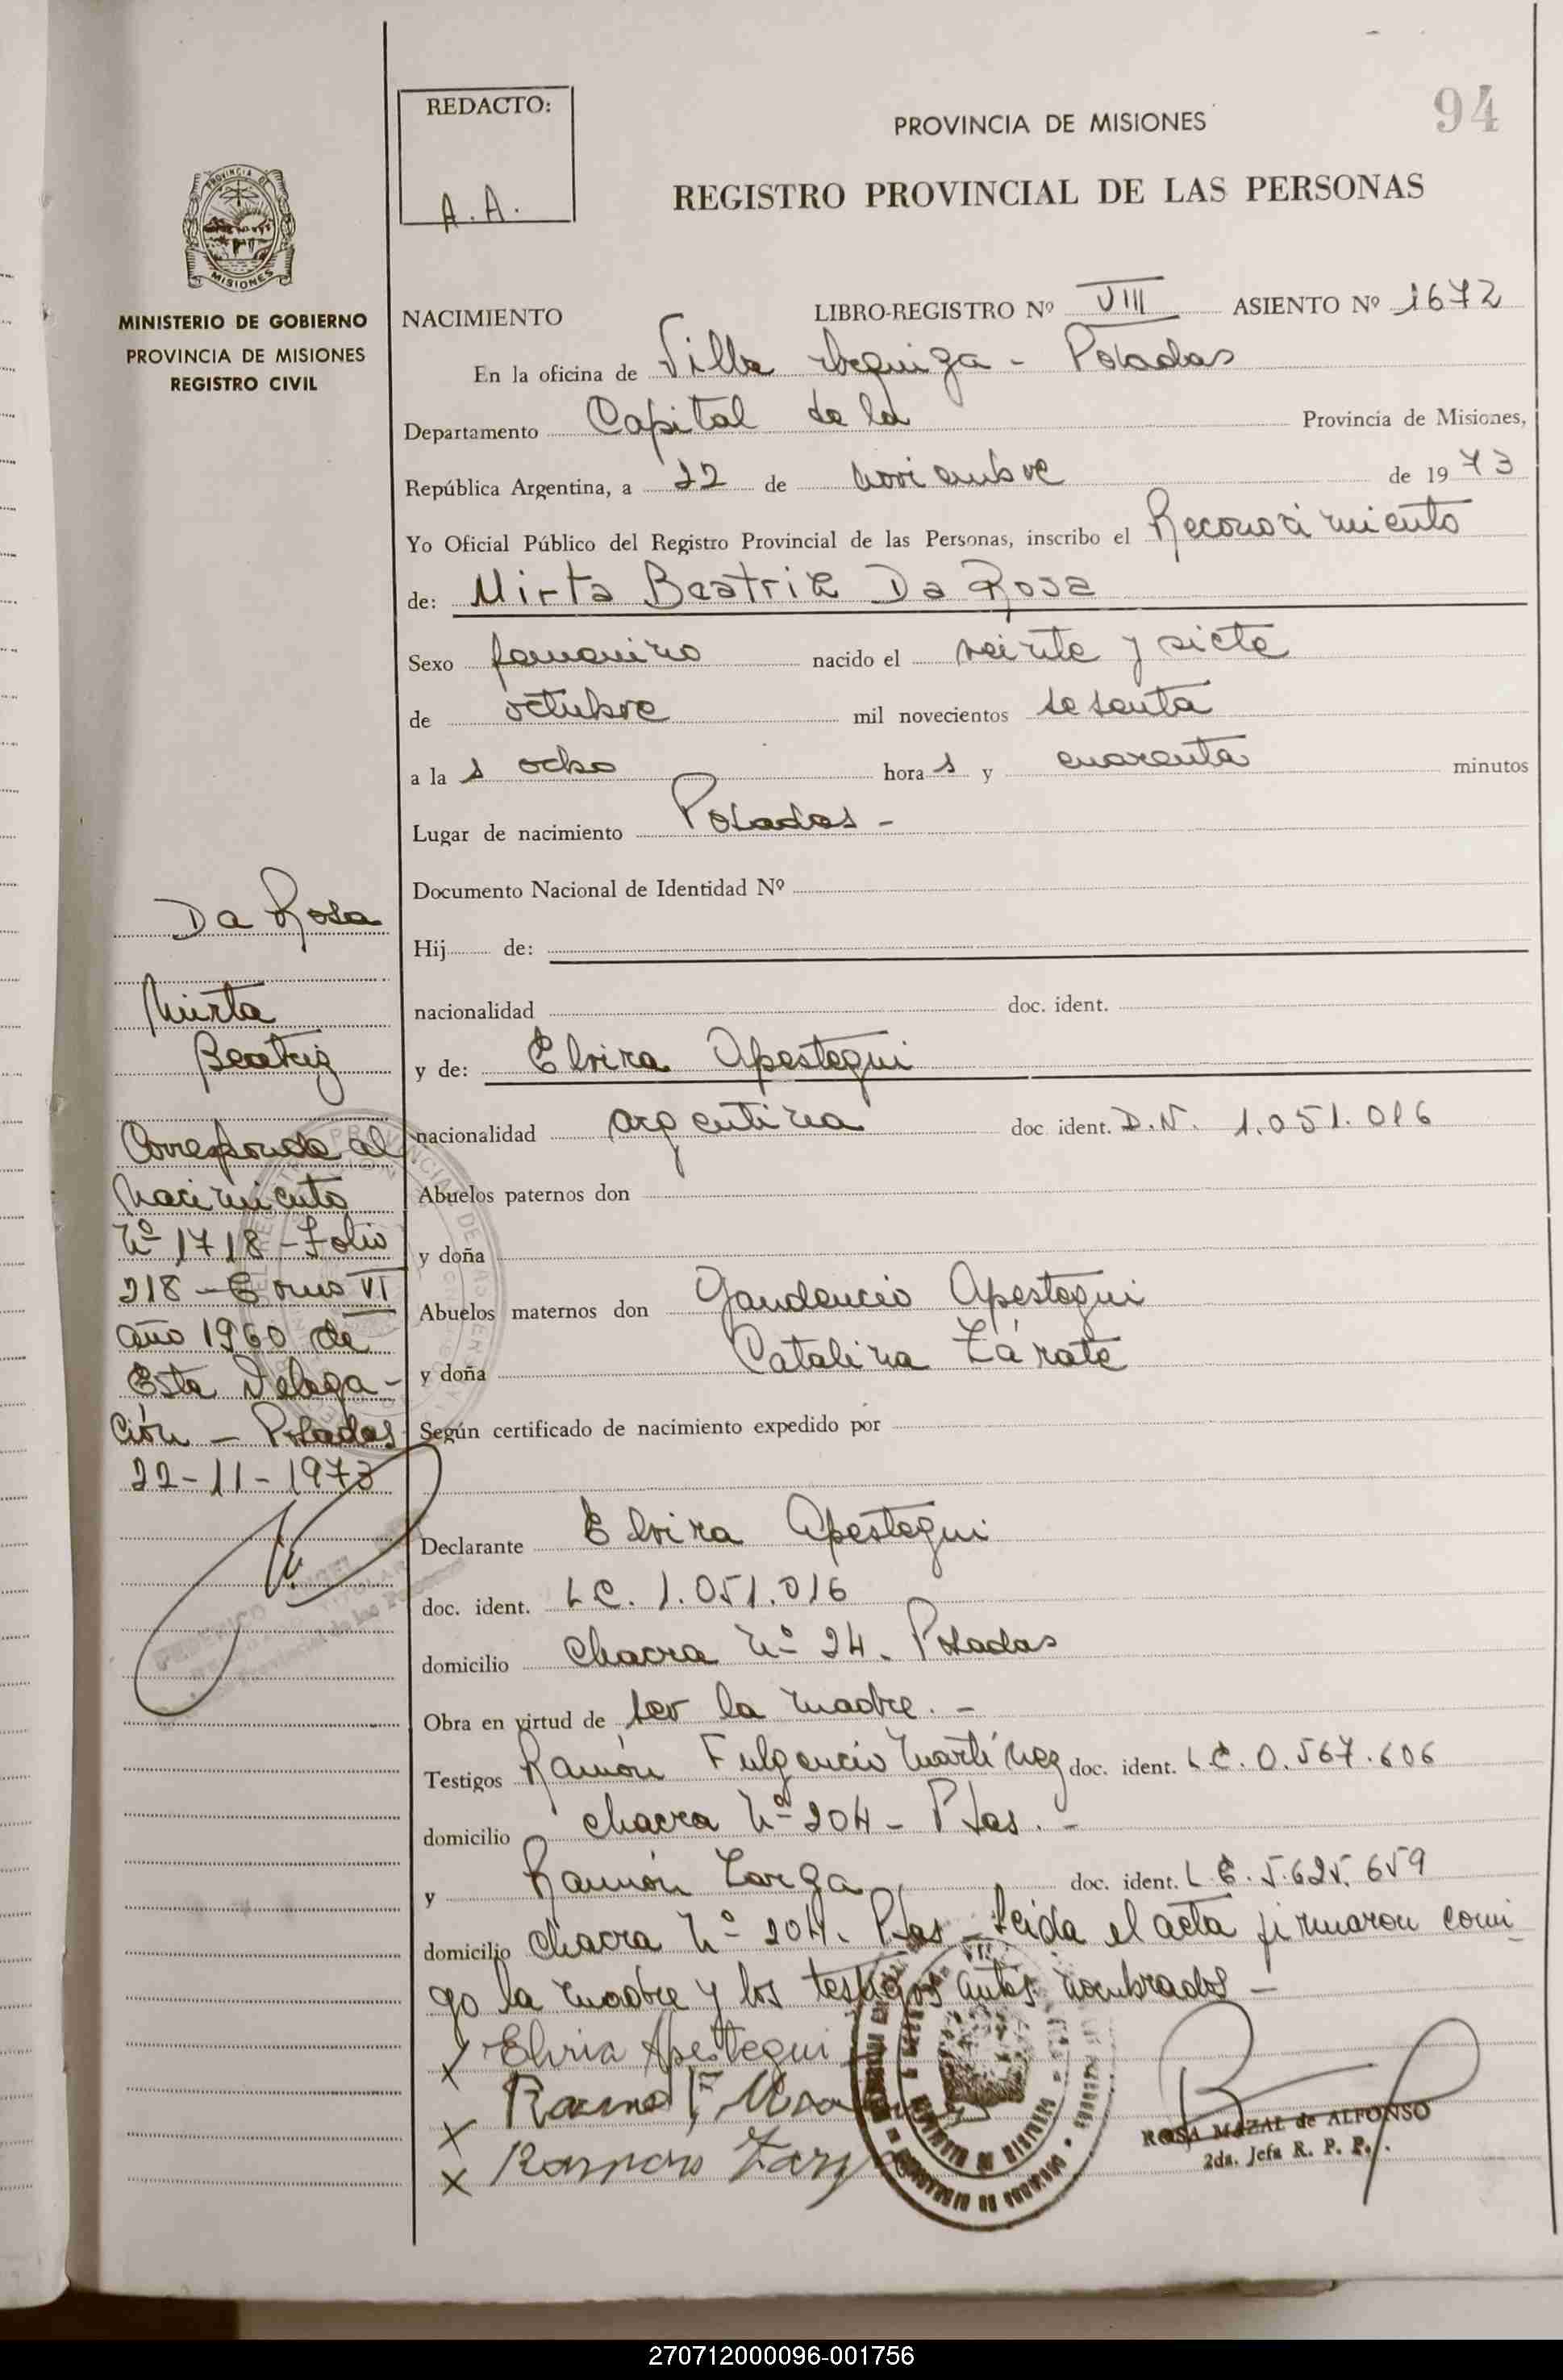 94
REDACTO:
A.A.
PROVINCIA DE MISIONES
REGISTRO PROVINCIAL DE LAS PERSONAS
PROVINCIA DE
MISIONES
MINISTERIO DE GOBIERNO
PROVINCIA DE MISIONES
REGISTRO CIVIL
NACIMIENTO LIBRO-REGISTRO Nº VIII ASIENTO Nº 1672
En la oficina de Villa Urquiza - Posadas
Departamento Capital de la Provincia de Misiones,
República Argentina, a 22 de noviembre de 1973
Yo Oficial Público del Registro Provincial de las Personas, inscribo el Reconocimiento
de: Mirta Beatriz Da Rosa
Sexo femenino nacido el veinte y siete
de octubre mil novecientos sesenta
a las ocho horas y cuarenta minutos
Lugar de nacimiento Posadas -
Documento Nacional de Identidad Nº
Hij de:
nacionalidad doc. ident.
y de: Elvira Apestegui
nacionalidad argentina doc ident. D.N. 1.051.016
Abuelos paternos don
y doña
Abuelos maternos don Gaudencio Apestegui
y doña Catalina Zárate
Según certificado de nacimiento expedido por
Declarante Elvira Apestegui
doc. ident. L C. 1.051.016
domicilio Chacra Nº 24. Posadas
Obra en virtud de ser la madre. -
Testigos Ramón Fulgencio Martínez doc. ident. L E. 0.567.606
domicilio chacra Nº 204 - Pdas. -
y Ramón Zarza doc. ident. L E. 5.625.659
domicilio Chacra Nº 204. Pdas - Leída el acta firmaron conmi
go la madre y los testigos antes nombrados -
x Elvira Apestegui
x Ramón F.
x Ramon
ROSA MAZAL de ALFONSO
2da. Jefa R. P. P.
Da Rosa
Mirta
Beatriz
Corresponde al
Nacimiento
Nº 1718 - Folio
218 - Tomo VI
año 1960 de
Esta Delega-
ción - Posadas
22-11-1973
270712000096-001756